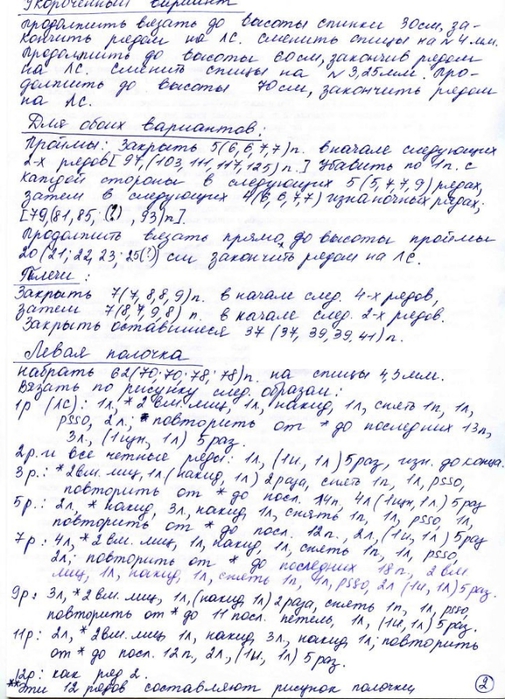 Укороченный вариант
Продолжить вязать до высоты спинки 30см, за-
кончить рядом на ЛС. сменить спицы на №4мм.
Продолжить до высоты 60см, закончив рядом
на ЛС. сменить спицы на №3,25мм. Про-
должить до высоты 70см, закончить рядом
на ЛС.
Для обоих вариантов:
Проймы: Закрыть 5(6,6,7,7)п. вначале следующих
2-х рядов [97,(103,111,117,125)п.] Убавить по 1п. с
каждой стороны в следующих 5(5,7,7,9) рядах,
затем в следующих 4(6,6,7,7) изнаночных рядах,
[79,(81,85,(?),93)п].
Продолжить вязать прямо до высоты проймы
20(21;22,23;25(!) см закончить рядом на ЛС.
Плечи:
Закрыть 7(7,8,8,9)п. в начале след. 4-х рядов,
затем 7(8,7,9,8) п. в начале след. 2-х рядов.
Закрыть оставшиеся 37 (37, 39,39,41)п.
Левая полочка
набрать 62(70;70;78;78)п. на спицы 4,5мм.
Вязать по рисунку след. образом:
1р (ЛС): 1л, *2 вм. лиц, 1л, накид, 1л, снять 1п, 1л,
psso, 2л; *повторить от * до последних 13п,
3л, (1изн, 1л) 5 раз.
2р. и все четные ряды: 1л, (1и, 1л) 5раз, изн. до конца.
3р.: *2вм. лиц, 1л (накид, 1л) 2раза, снять 1п, 1л, psso,
повторить от * до посл. 14п, 4л (1изн, 1л) 5раз
5р.: 2л, * накид, 3л, накид, 1л, снять 1п, 1л, psso, 1л,
повторить от * до посл. 12п, 2л, (1и, 1л) 5раз
7р: 4л, *2 вм. лиц, 1л, накид, 1л, снять 1п, 1л, psso,
2л: повторить от * до последних 18п, 2 вм
лиц, 1л, накид, 1л, снять 1п, 1л, psso, 2л (1и, 1л) 5раз.
9р: 3л, *2 вм. лиц, 1л, (накид 1л) 2раза, снять 1п, 1л, psso,
повторить от * до 11 посл. петель, 1л, (1и, 1л) 5раз.
11р: 2л, *2вм. лиц 1л, накид, 3л, накид 1л; повторить
от * до посл. 12п, 2л, (1и, 1л) 5раз.
12р: как ряд 2.
**Эти 12 рядов составляют рисунок полочки
2